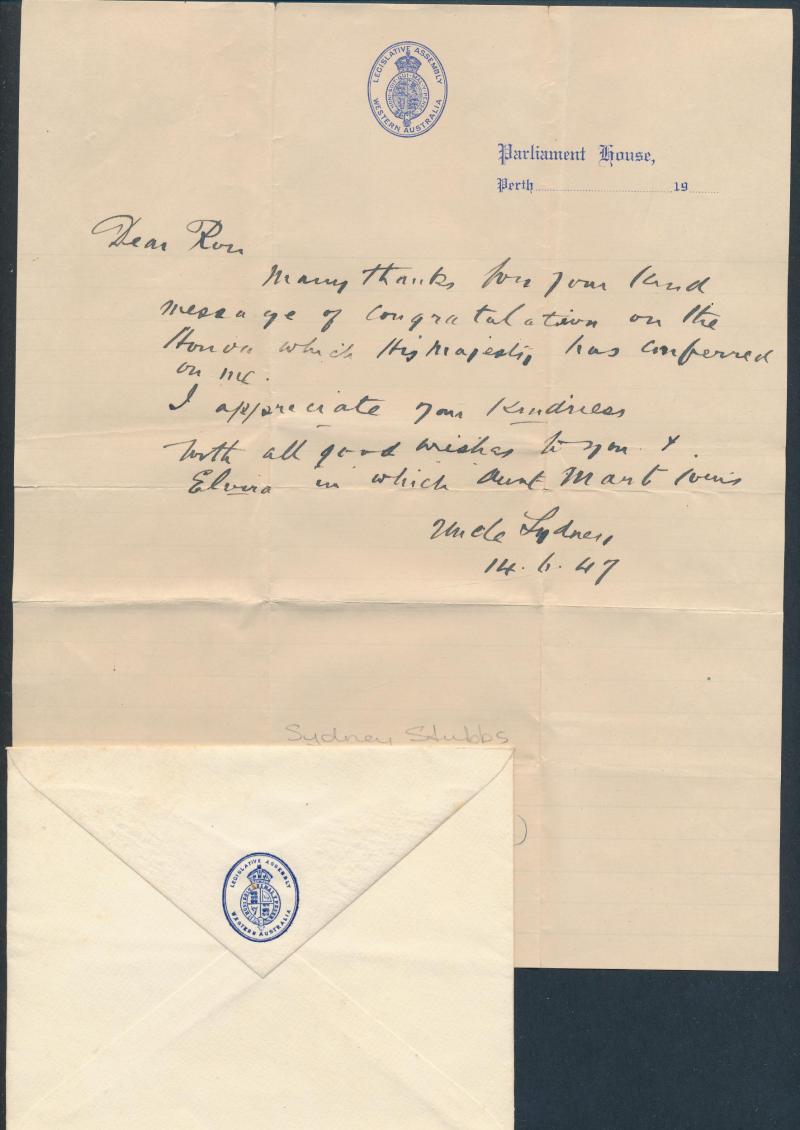 LEGISLATIVE ASSEMBLY
WESTERN AUSTRALIA
Parliament House,
Perth 19
Dear Ron
Many thanks for your kind
message of congratulation on the
Honor which His Majesty has conferred
on me.
I appreciate your kindness
With all good wishes to you &
Elvira in which Aunt Mart joins
Uncle Sydney
14.6.47
Sydney Stubbs
)
LEGISLATIVE ASSEMBLY
WESTERN AUSTRALIA